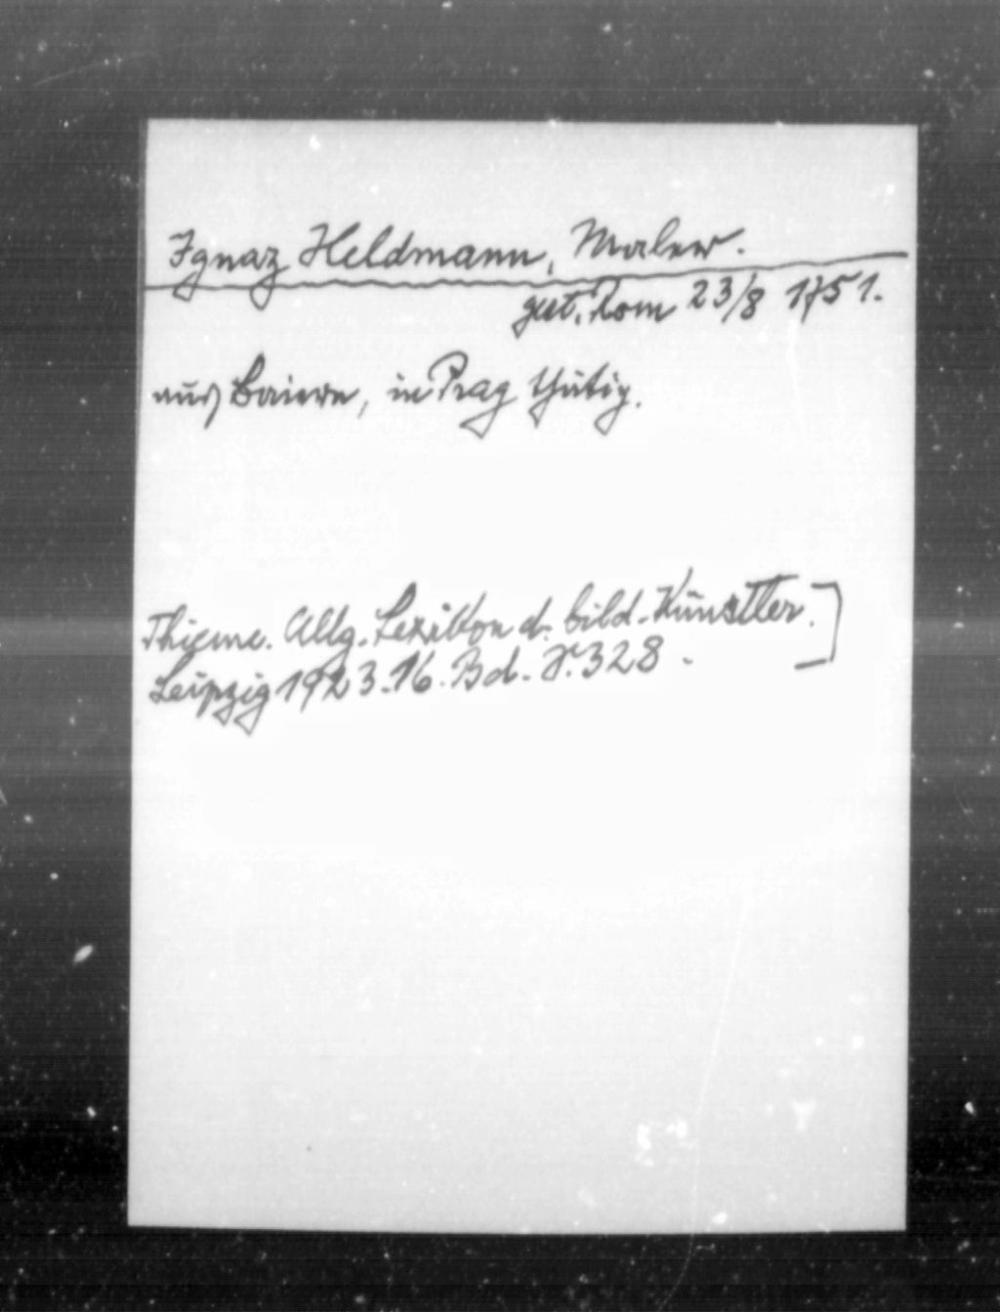 Ignaz Heldmann, Maler.
get. Rom 23/8 1751.
aus Baiern, in Prag thätig.
Thieme. Allg. Lexikon d. bild. Künstler.]
Leipzig 1923. 16. Bd. S. 328.